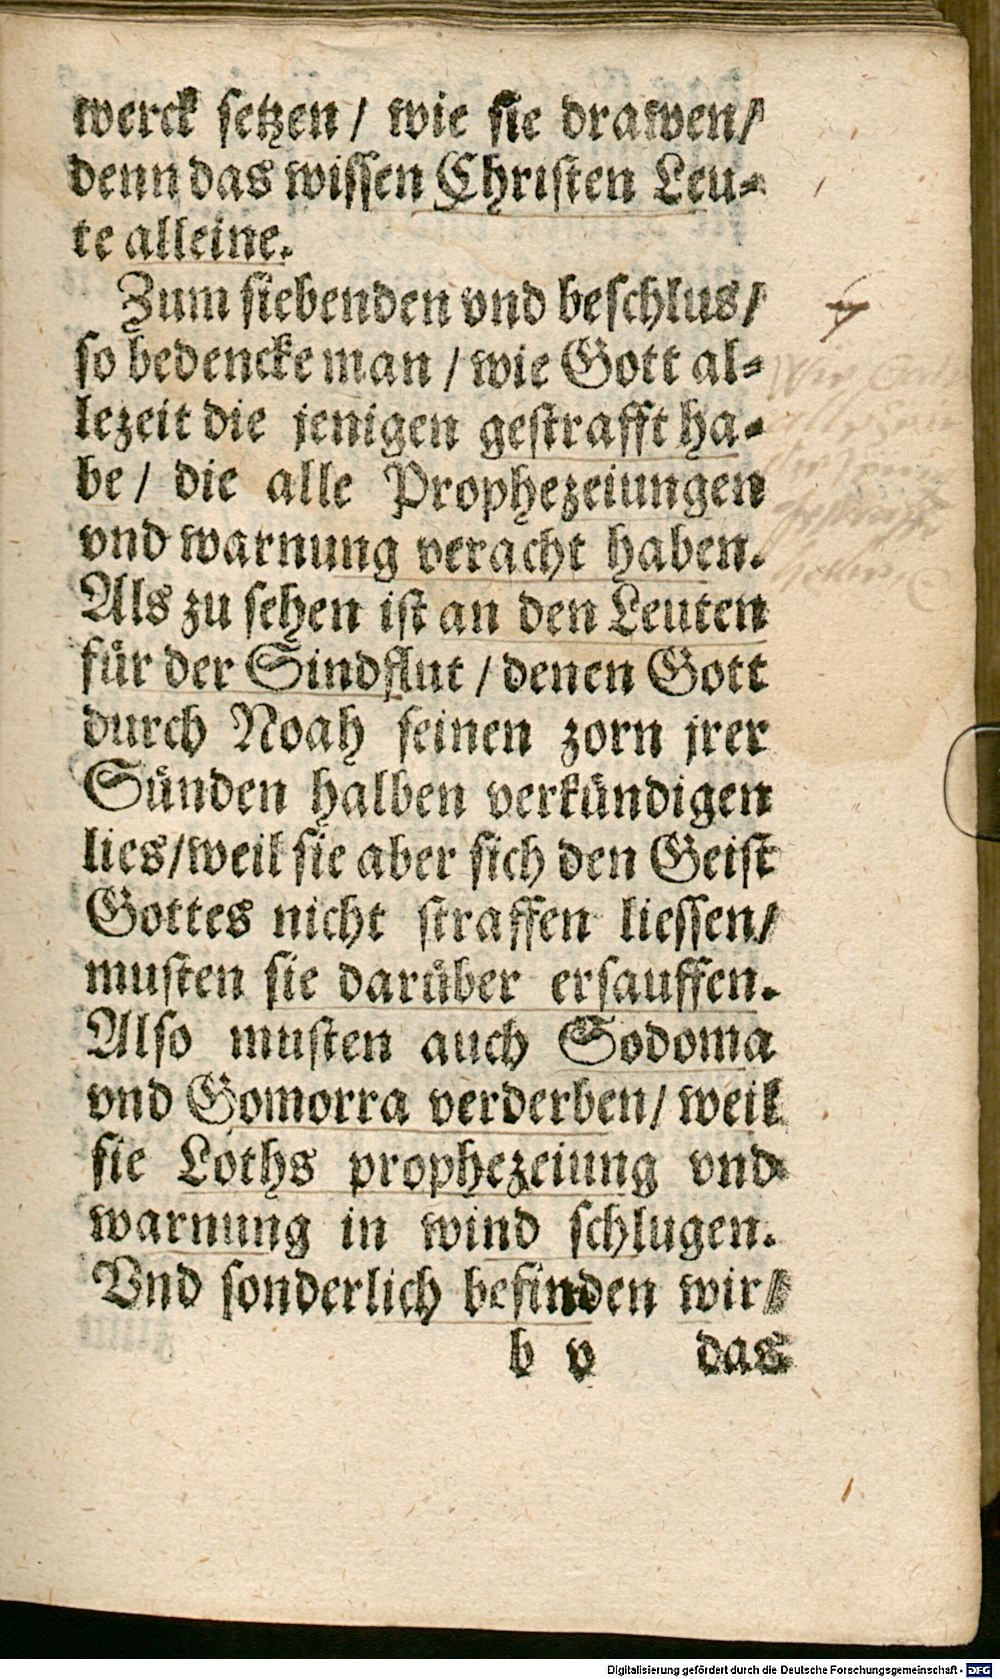 werck setzen / wie sie drawen /
denn das wissen Christen Leu-
te alleine.
Zum siebenden vnd beschlus /
so bedencke man / wie Gott al-
lezeit die jenigen gestrafft ha-
be / die alle Prophezeiungen
vnd warnung veracht haben.
Als zu sehen ist an den Leuten
für der Sindflut / denen Gott
durch Noah seinen zorn jrer
Sünden halben verkündigen
lies / weil sie aber sich den Geist
Gottes nicht straffen liessen /
musten sie darüber ersauffen.
Also musten auch Sodoma
vnd Gomorra verderben / weil
sie Loths prophezeiung vnd
warnung in wind schlugen.
Vnd sonderlich befinden wir /
b v das
Digitalisierung gefördert durch die Deutsche Forschungsgemeinschaft - DFG